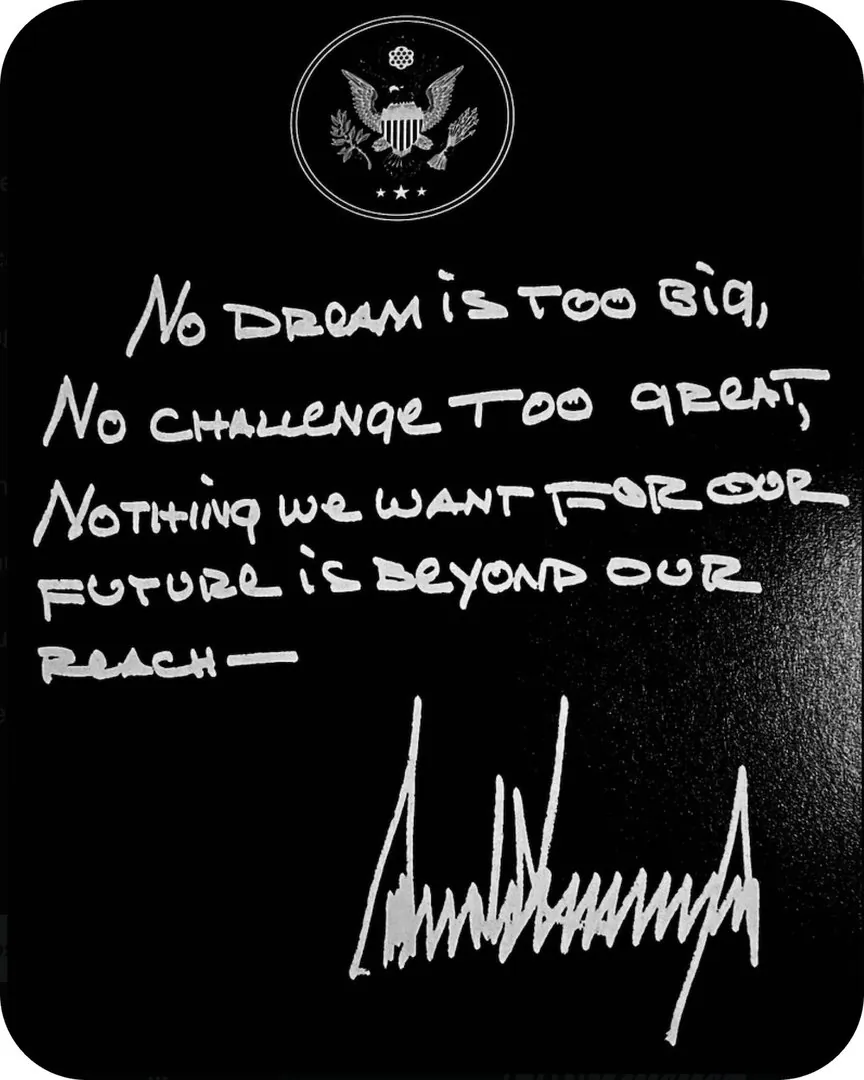 No DREAM is TOO Big,
No CHALLENGE TOO gREAT,
NOTHiNg we WANT FOR OUR
FUTURE is BEYOND OUR
REACH—